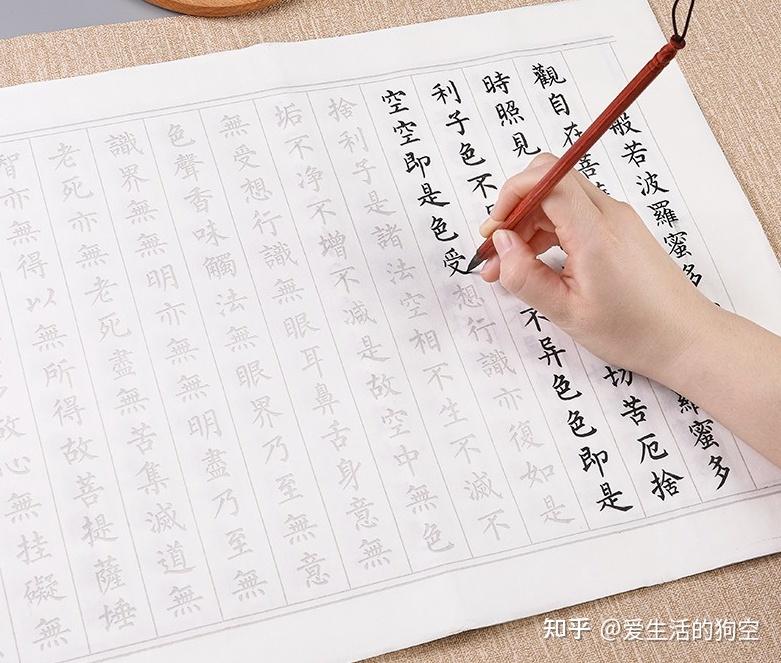 般若波羅蜜多
觀自在菩 羅蜜多
時照見 切苦厄捨
利子色不 不异色色即是
空空即是色受想行識亦復如是
捨利子是諸法空相不生不滅不
垢不净不增不减是故空中無色
無受想行識無眼耳鼻舌身意無
色聲香味觸法無眼界乃至無意
識界無無明亦無無明盡乃至無
老死亦無老死盡無苦集滅道無
智亦無得以無所得故菩提薩埵
故心無挂礙無
知乎 @爱生活的狗空